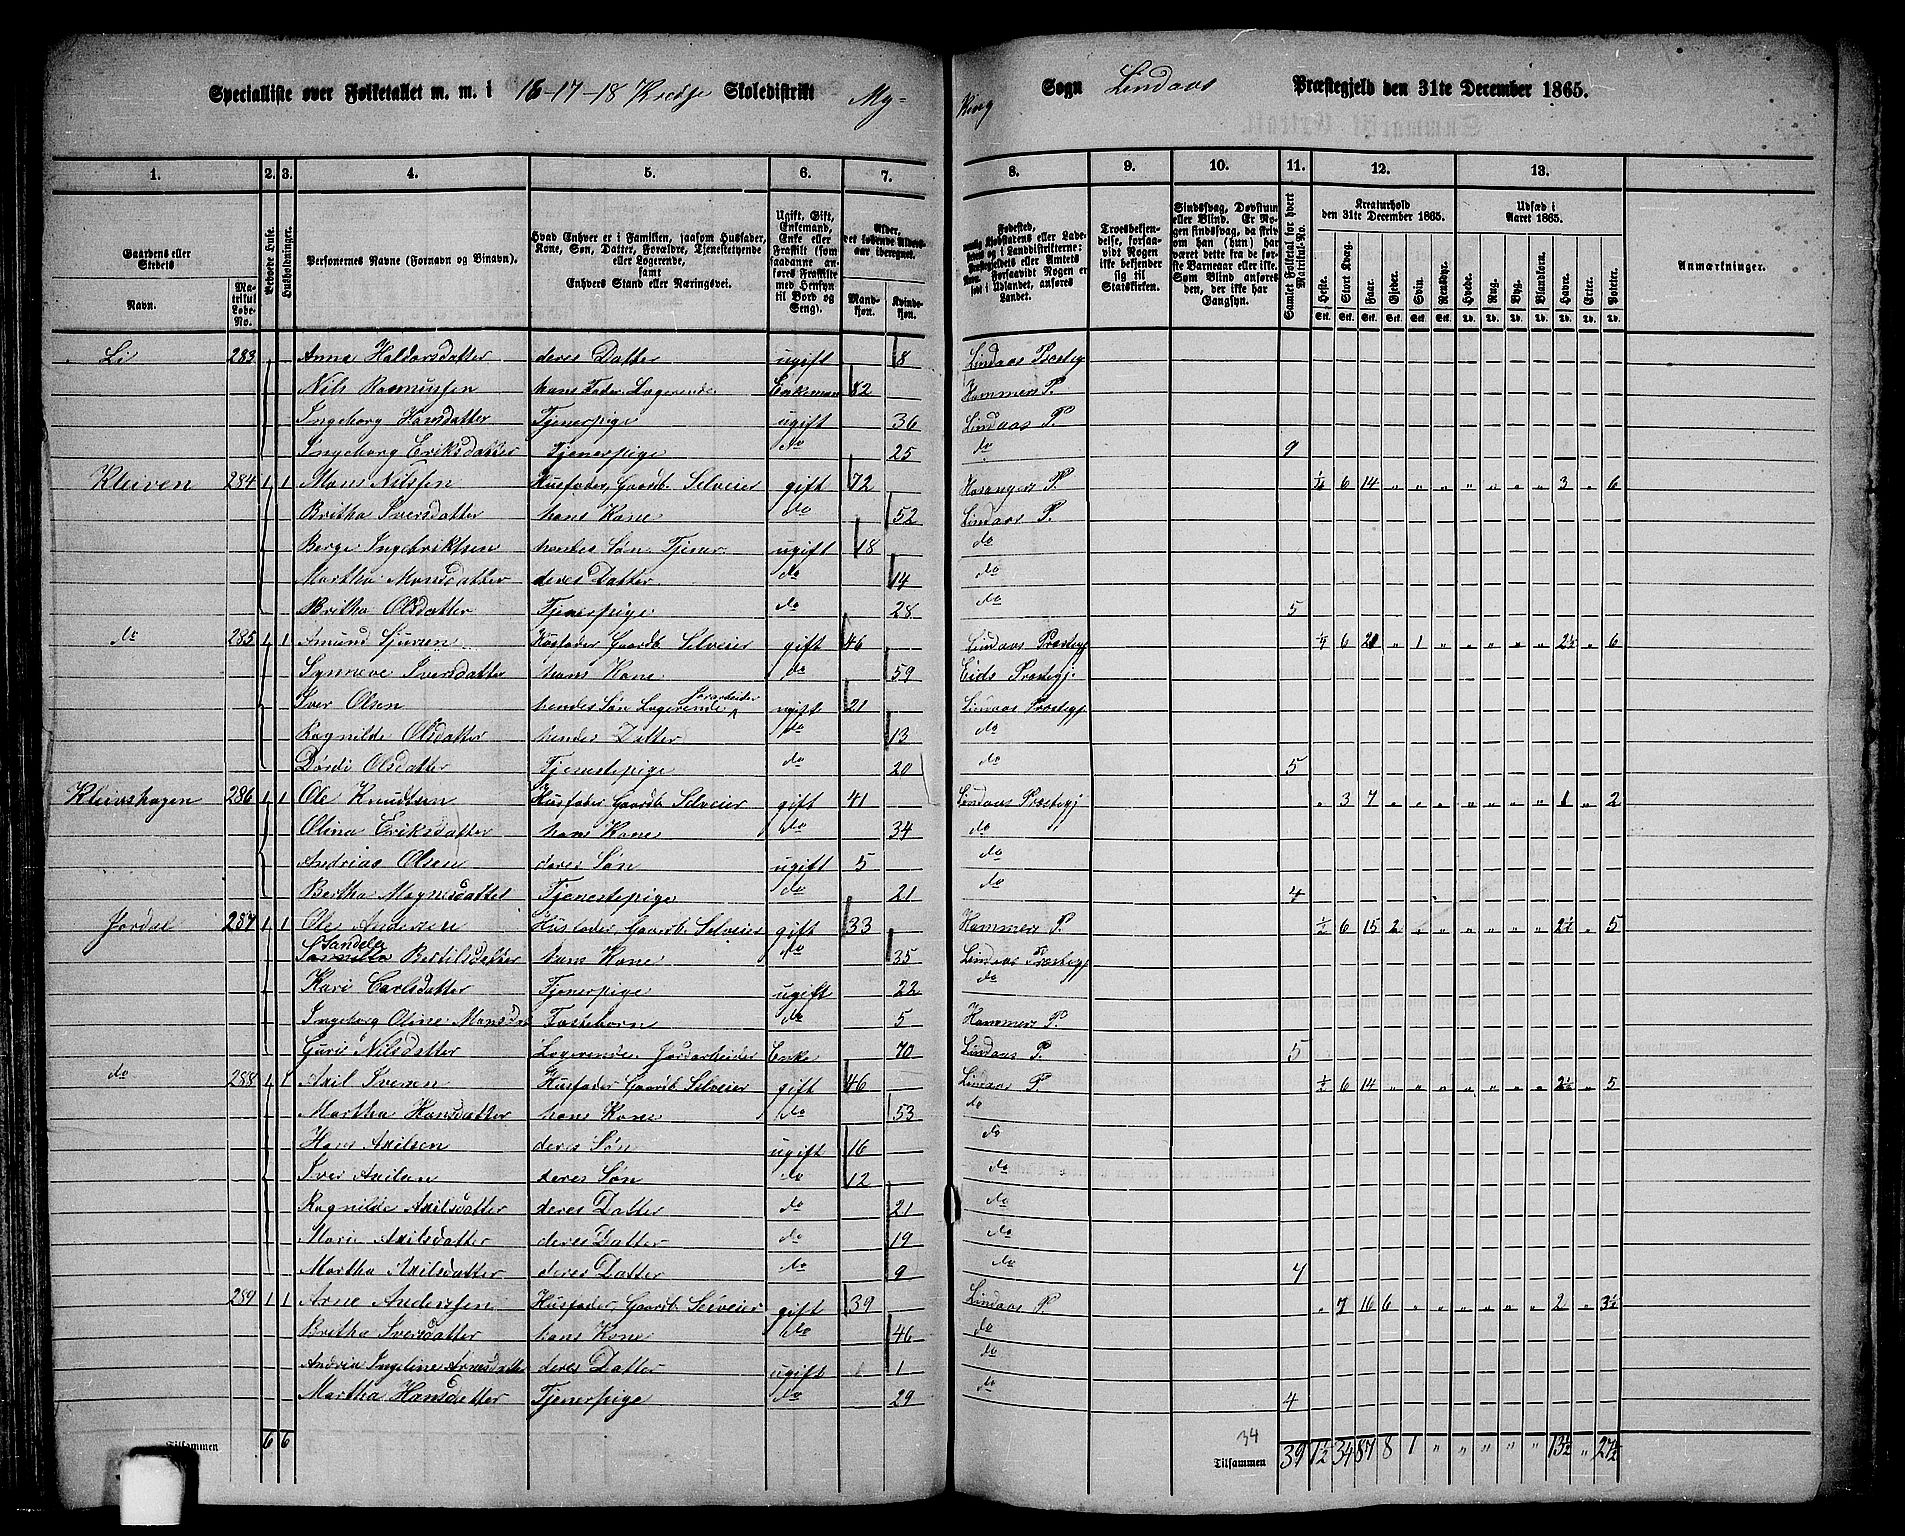 Specialliste over Folketallet m. m. i 16-17-18 Kredse Skoledistrikt My-
king Sogn Lindaas Præstegjeld den 31te December 1865.
1. 2. 3. 4. 5. 6. 7. 8. 9. 10. 11. 12. 13.
Gaardens eller Stedets Navn. Matrikul Løbe-No. Beboede Huse. Husholdninger. Personernes Navne (Fornavn og Binavn). Hvad Enhver er i Familien, saasom Husfader, Kone, Søn, Datter, Forældre, Tjenestetyende eller Logerende, samt Enhvers Stand eller Næringsvei. Ugift, Gift, Enkemand, Enke eller Fraskilt (som saadanne anføres Fraskilte med Hensyn til Bord og Seng). Alder, det løbende Aldersaar iberegnet. Mandkjøn. Kvindekjøn.
Fødested, Troesbekjendelse, forsaavidt Nogen ikke bekjender sig til Statskirken. Sindssvag, Døvstum eller Blind. Samlet Folketal for hvert Matrikul-No. Kreaturhold den 31te December 1865. Udsæd i Aaret 1865. Anmærkninger.
Heste. Stort Kvæg. Faar. Gjeder. Svin. Rensdyr. Hvede. Rug. Byg. Blandkorn. Havre. Erter. Poteter.
Li 283 Anna Haldorsdatter deres Datter ugift 8 Lindaas Præstegj
Nils Rasmussen hans Fader Logerende Enkeman 82 Hammers P.
Ingeborg Hansdatter Tjenerpige ugift 36 Lindaas P.
Ingeborg Eriksdatter Tjenerpige do 25 do 9
Kleiven 284 1 1 Mons Nilssen Husfader, Gaardb. Selveier gift 72 Hosangers P. ¼ 6 14 " " " " " " " 3 " 6
Britha Iversdatter hans Kone do 52 Lindaas P.
Berge Ingebriktsen hendes Søn Tjener ugift 18 do
Martha Monsdatter deres Datter do 14 do
Britha Olsdatter Tjenerpige do 28 do 5
do 285 1 1 Amund Sjursen Husfader Gaardb Selveier gift 46 Lindaas Præstegj ¼ 6 21 " 1 " " " " " 2½ " 6
Synneve Iversdatter hans Kone do 59 Eids Præstegj.
Iver Olsen hendes Søn Logerende Jorarbeider ugift 21 Lindaas Præstegj
Ragnilde Olsdatter hendes Datter do 13 do
Dordi Olsdatter Tjenestepige do 20 do 5
Kleivshagen 286 1 1 Ole Knudtsen Husfader Gaardb Selveier gift 41 Lindaas Præstegj " 3 7 " " " " " " " 1 " 2
Olina Eriksdatter hans Kone do 34 do
Andreas Olsen deres Søn ugift 5 do
Bertha Magnesdatter Tjenestepige do 21 do 4
Jordal 287 1 1 Ole Andersen Husfader, Gaardb Selveier gift 33 Hammers P. ½ 6 15 2 " " " " " " 2½ " 5
Sandela Bertilsdatter hans Kone do 35 Lindaas Præstegj
Kari Carlsdatter Tjenerpige ugift 22 do
Ingeborg Oline Monsda Fosterbarn do 5 Hammers P.
Guri Nilsdatter Logerende, Jordarbeider Enke 70 Lindaas P. 5
do 288 1 1 Axil Iversen Husfader Gaardb Selveier gift 46 Lindaas P. ½ 6 14 " " " " " " " 2½ " 5
Martha Hansdatter hans Kone do 53 do
Hans Axilsen deres Søn ugift 16 do
Iver Axilsen deres Søn do 12 do
Ragnilde Axilsdatter deres Datter do 21 do
Mari Axilsdatter deres Datter do 19 do
Martha Axilsdatter deres Datter do 9 do 7
289 1 1 Arne Anderssen Husfader, Gaardb Selveier gift 39 Lindaas P. " 7 16 6 " " " " " " 2 " 3½
Britha Iversdatter hans Kone do 46 do
Andria Ingeline Arnesdatter deres Datter ugift 1 do
Martha Hansdatter Tjenerpige do 29 do 4
34
Tilsammen 6 6 Tilsammen 39 1½ 34 87 8 1 " " " " " 13½ " 27½